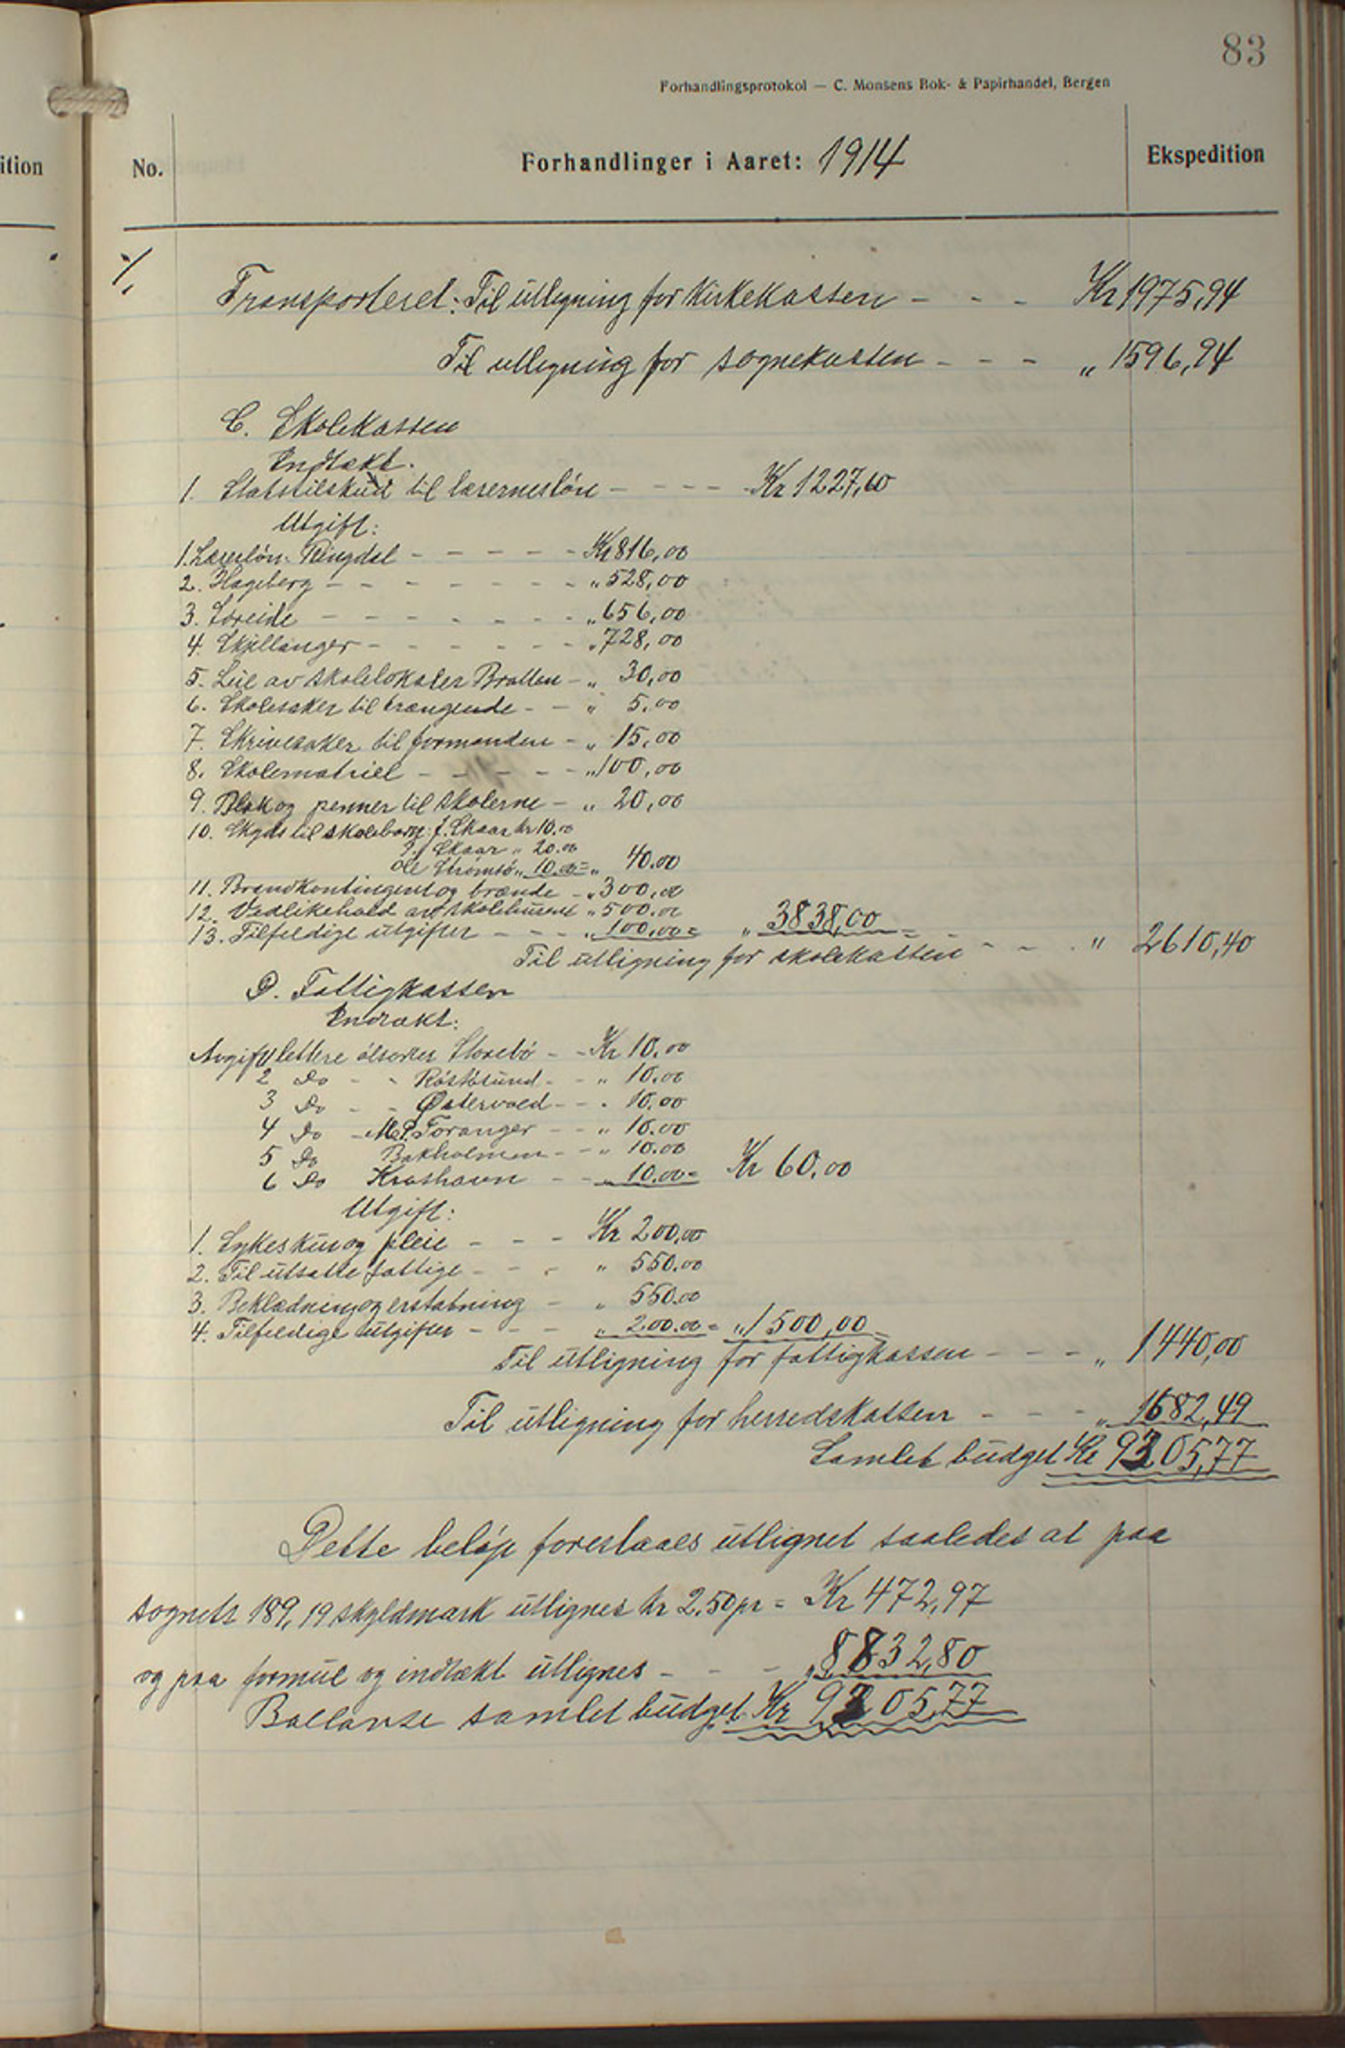 83
Forhandlingsprotokol — C. Monsens Bok- & Papirhandel, Bergen
ition
No.
Forhandlinger i Aaret: 1914
Ekspedition
Transporteret: Til utlegning for Kirkekassen - - - Kr 1975,94
Til utlegning for sognekassen - - - " 1596,94
C. Skolekassen
Indtækt.
1. Statstilskud til lærernesløn - - - - Kr 1227,60
Utgift:
1. Lærerløn. Ringdal - - - - - Kr 816,00
2. Hageberg - - - - - - - " 528,00
3. Soreide - - - - - - - " 656,00
4. Skjellanger - - - - - - " 728,00
5. Leie av skolelokaler Bratten - " 30,00
6. Skolesaker til trængende - - " 5,00
7. Skrivesaker til formanden - " 15,00
8. Skolematriel - - - - - " 100,00
9. Blæk og penner til skolerne - " 20,00
10. Skyds til skolebarn: J. Skaar kr 10.00
Skaar " 20.00
Ole Strømsø " 10.00 = " 40.00
11. Brandkontingent og brænde - " 300,00
12. Vedlikehold av skolehusene " 500.00
13. Tilfeldige utgifter - - - " 100,00 = " 3838,00
Til utligning for skolekassen - - - " 2610,40
D. Fattigkassen
Indtækt:
Avgift lettere ølsorter Storebø - - Kr 10.00
2 Do - - Røstøsund - - " 10.00
3 Do - - Østervold - - " 10.00
4 Do - M. P. Foranger - - " 10.00
5 Do Bakholmen - - " 10.00
6 Do Kroshavn - - " 10.00 = Kr 60,00
Utgift:
1. Sykeskur og pleie - - - Kr 200,00
2. Til utsatte fattige - - - " 550.00
3. Beklædning og erstatning - " 550.00
4. Tilfeldige utgifter - - - " 200.00 = " 1500,00
Til utligning for fattigkassen - - - " 1440,00
Til utligning for herredskassen - - - " 1682,49
Samlet budget Kr 9305,77
Dette beløp foreslaaes utlignet saaledes at paa
sognets 189,19 skyldmark utlignes kr 2,50 pr = Kr 472,97
og paa formue og indtækt utlignes - - - " 8832,80
Ballanse samlet budget Kr 9305,77